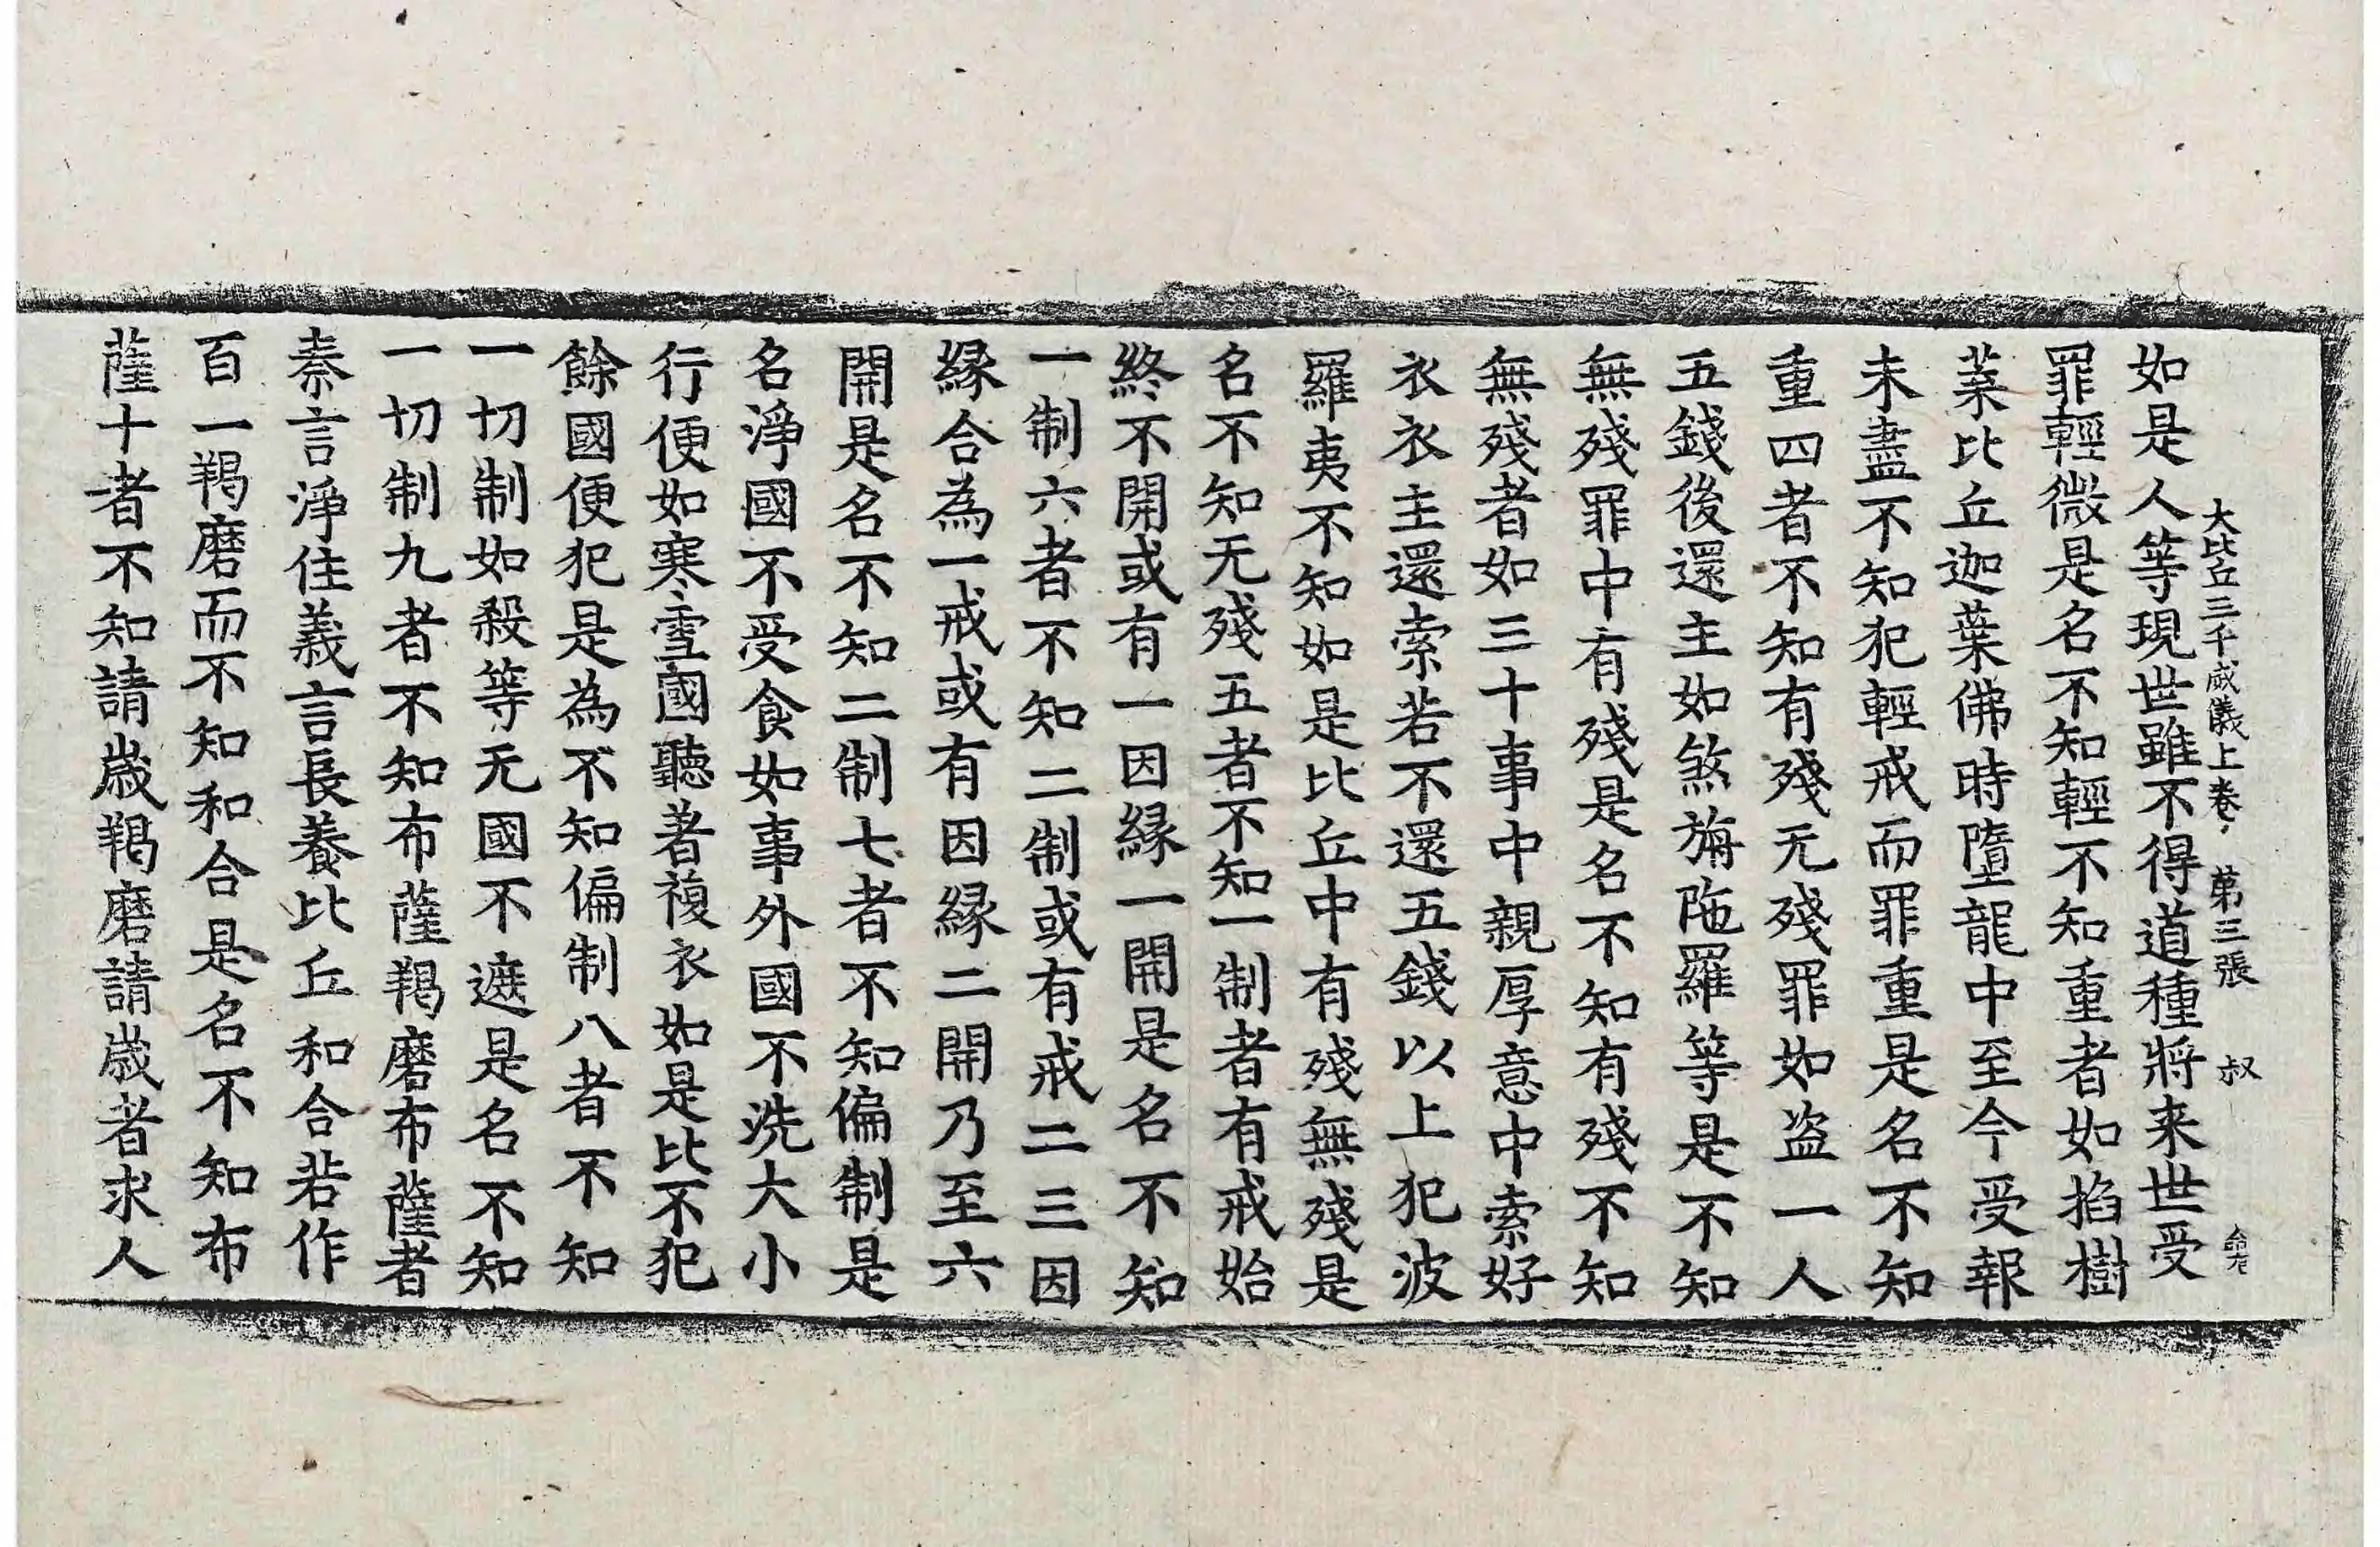 大比丘三千威儀上卷 第三張 叔
如是人等現世雖不得道種將来世受
罪輕微是名不知輕不知重者如掐樹
葉比丘迦葉佛時墮龍中至今受報
未盡不知犯輕戒而罪重是名不知
重四者不知有殘无殘罪如盜一人
五錢後還主如煞旃陁羅等是不知
無殘罪中有殘是名不知有殘不知
無殘者如三十事中親厚意中索好
衣衣主還索若不還五錢以上犯波
羅夷不知如是比丘中有殘無殘是
名不知无殘五者不知一制者有戒始
終不開或有一因緣一開是名不知
一制六者不知二制或有戒二三因
緣合為一戒或有因緣二開乃至六
開是名不知二制七者不知偏制是
名淨國不受食如事外國不洗大小
行便如寒雪國聽著複衣如是比不犯
餘國便犯是為不知偏制八者不知
一切制如殺等无國不遮是名不知
一切制九者不知布薩羯磨布薩者
秦言淨住義言長養比丘和合若作
百一羯磨而不知和合是名不知布
薩十者不知請歲羯磨請歲者求人